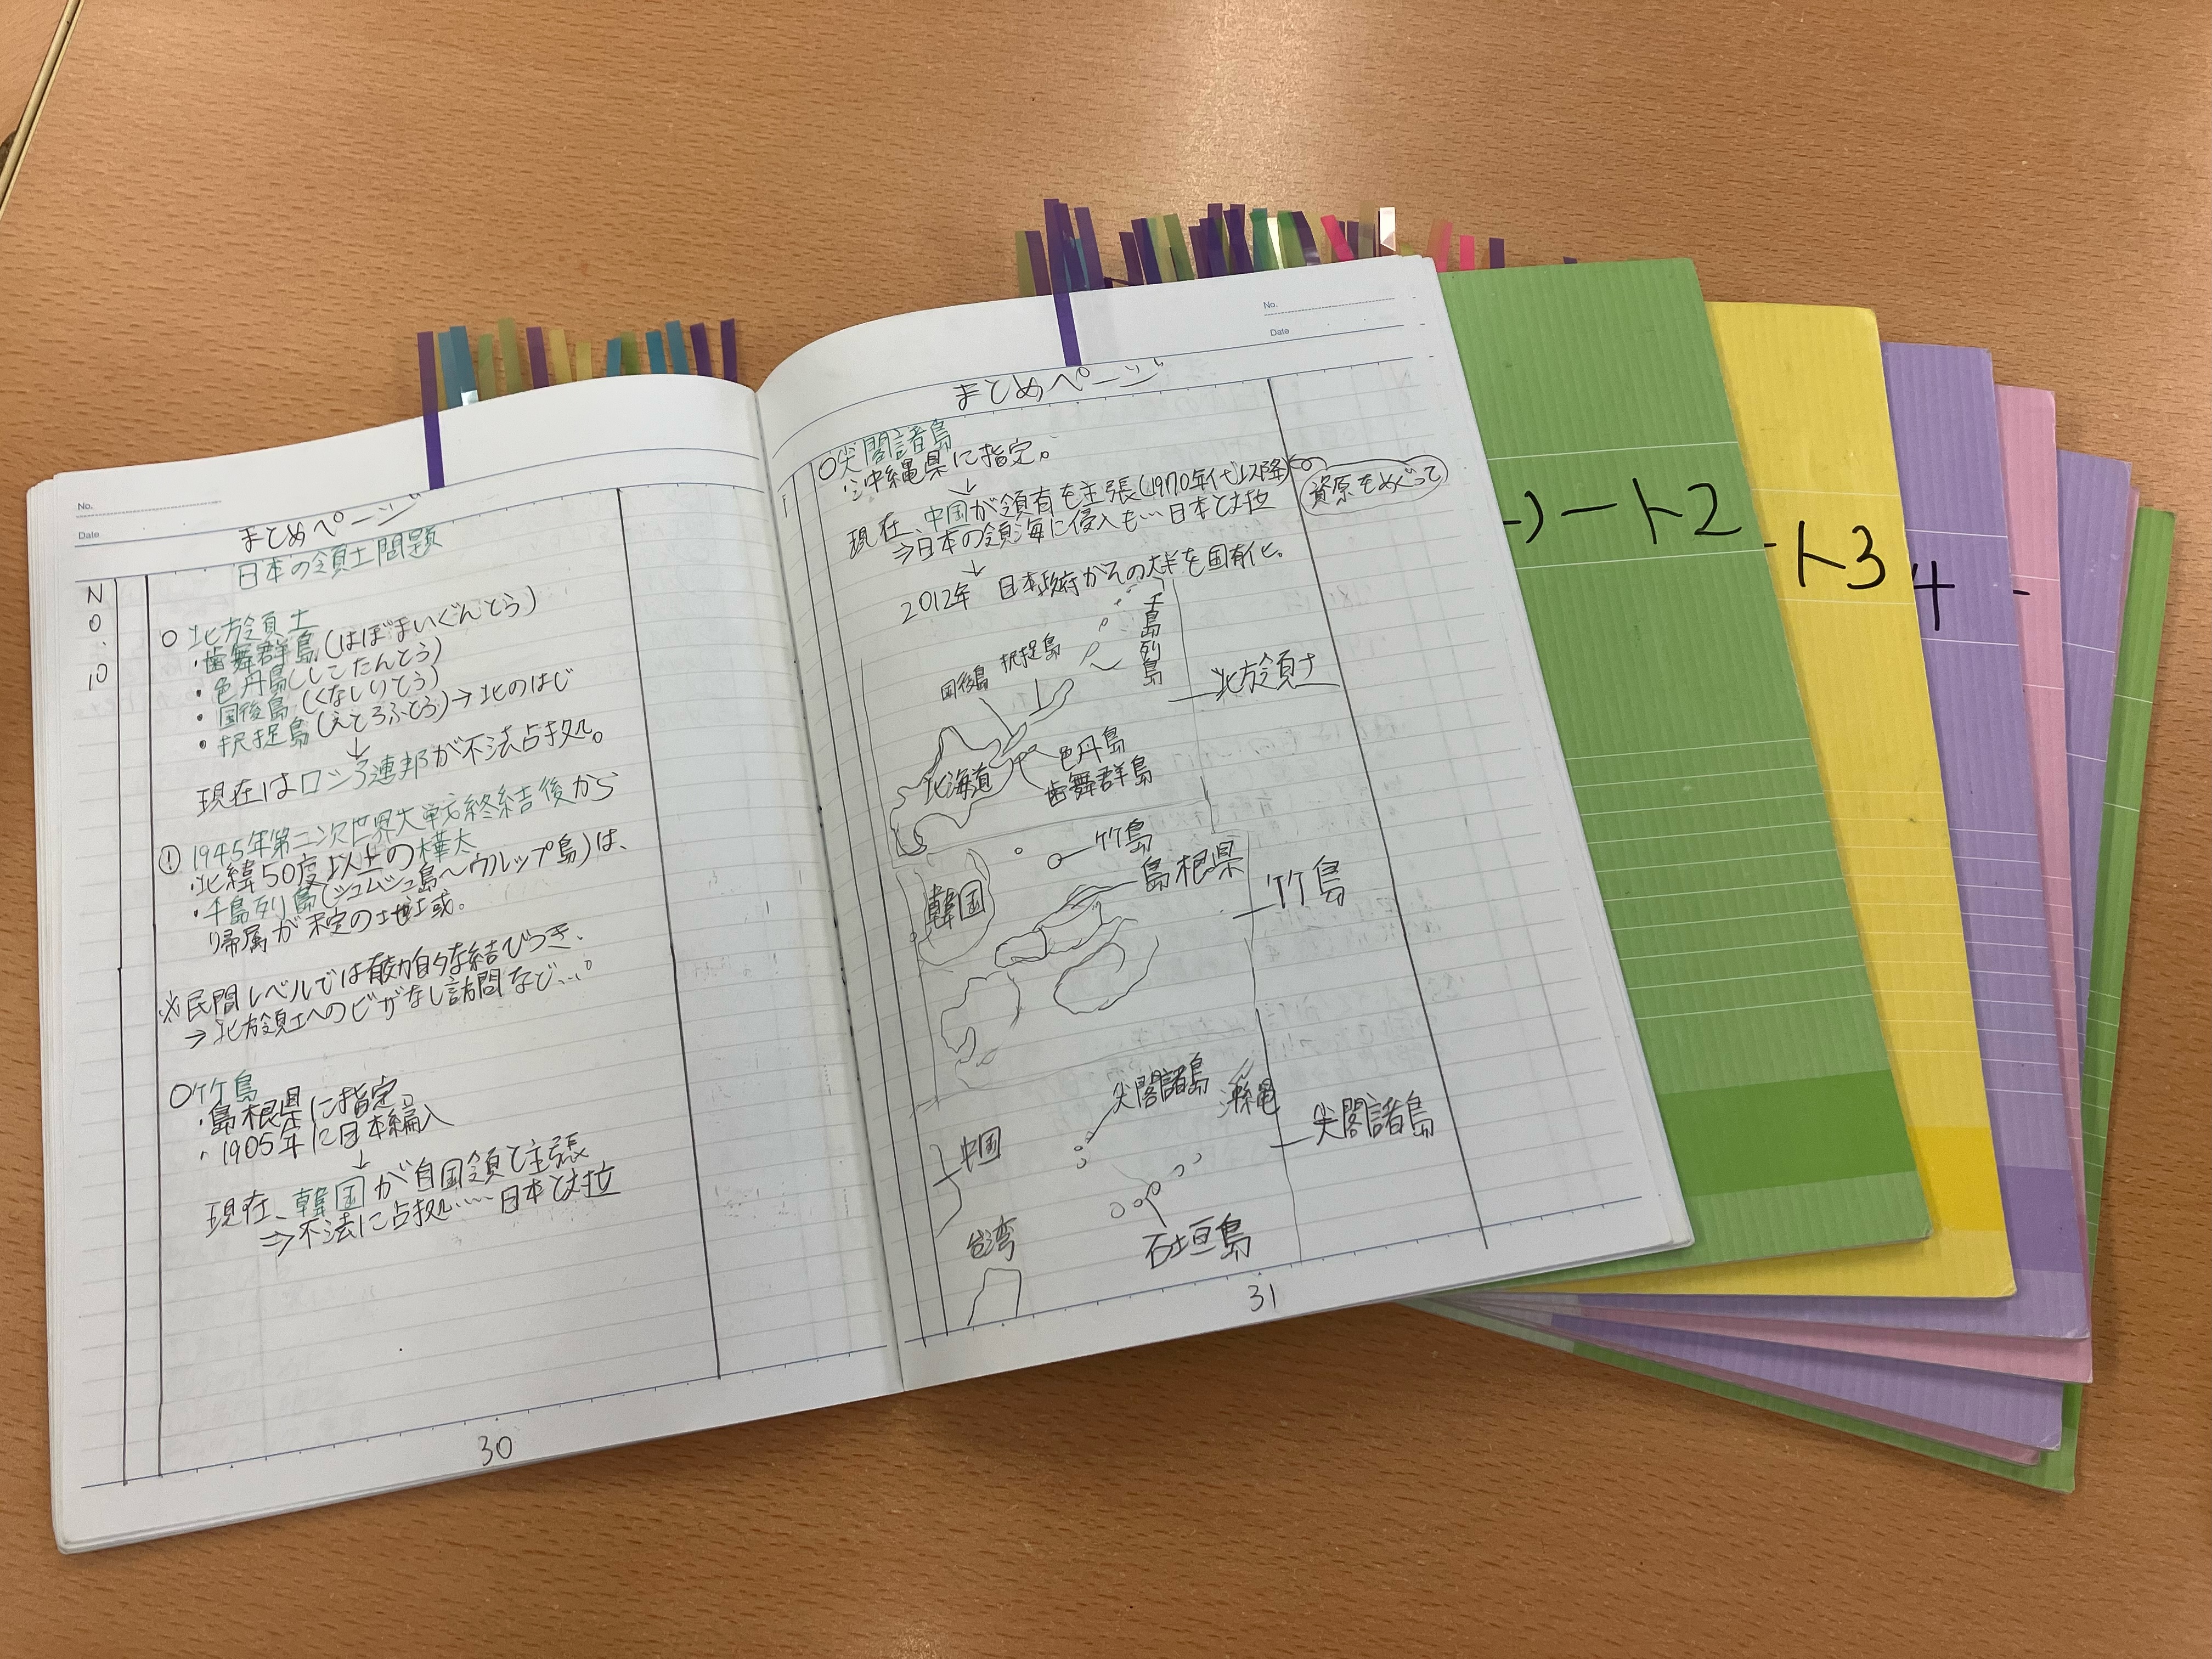 No.
Date
まとめページ
日本の領土問題
No.10
○北方領土
・歯舞群島(はぼまいぐんとう)
・色丹島(しこたんとう)
・国後島(くなしりとう)
・択捉島(えとろふとう)→北のはじ
↓
現在はロシア連邦が不法占拠。
① 1945年第二次世界大戦終結後から
・北緯50度以上の樺太
・千島列島(シュムシュ島〜ウルップ島)は、
帰属が未定の地域。
※民間レベルでは有効的な結びつき、
→北方領土へのビザなし訪問など…。
○竹島
・島根県に指定。
・1905年に日本編入
↓
現在、韓国が自国領と主張
⇒不法に占拠…日本と対立
30
No.
Date
まとめページ
○尖閣諸島
沖縄県に指定。
↓
現在、中国が領有を主張(1970年代以降)
資源をめぐって
⇒日本の領海に侵入も…日本と対立
↓
2012年 日本政府がその大半を国有化。
千島列島
国後島
択捉島
北方領土
北海道
色丹島
歯舞群島
竹島
島根県
韓国
竹島
尖閣諸島
沖縄
尖閣諸島
中国
台湾
石垣島
31
ート2
ト3
4